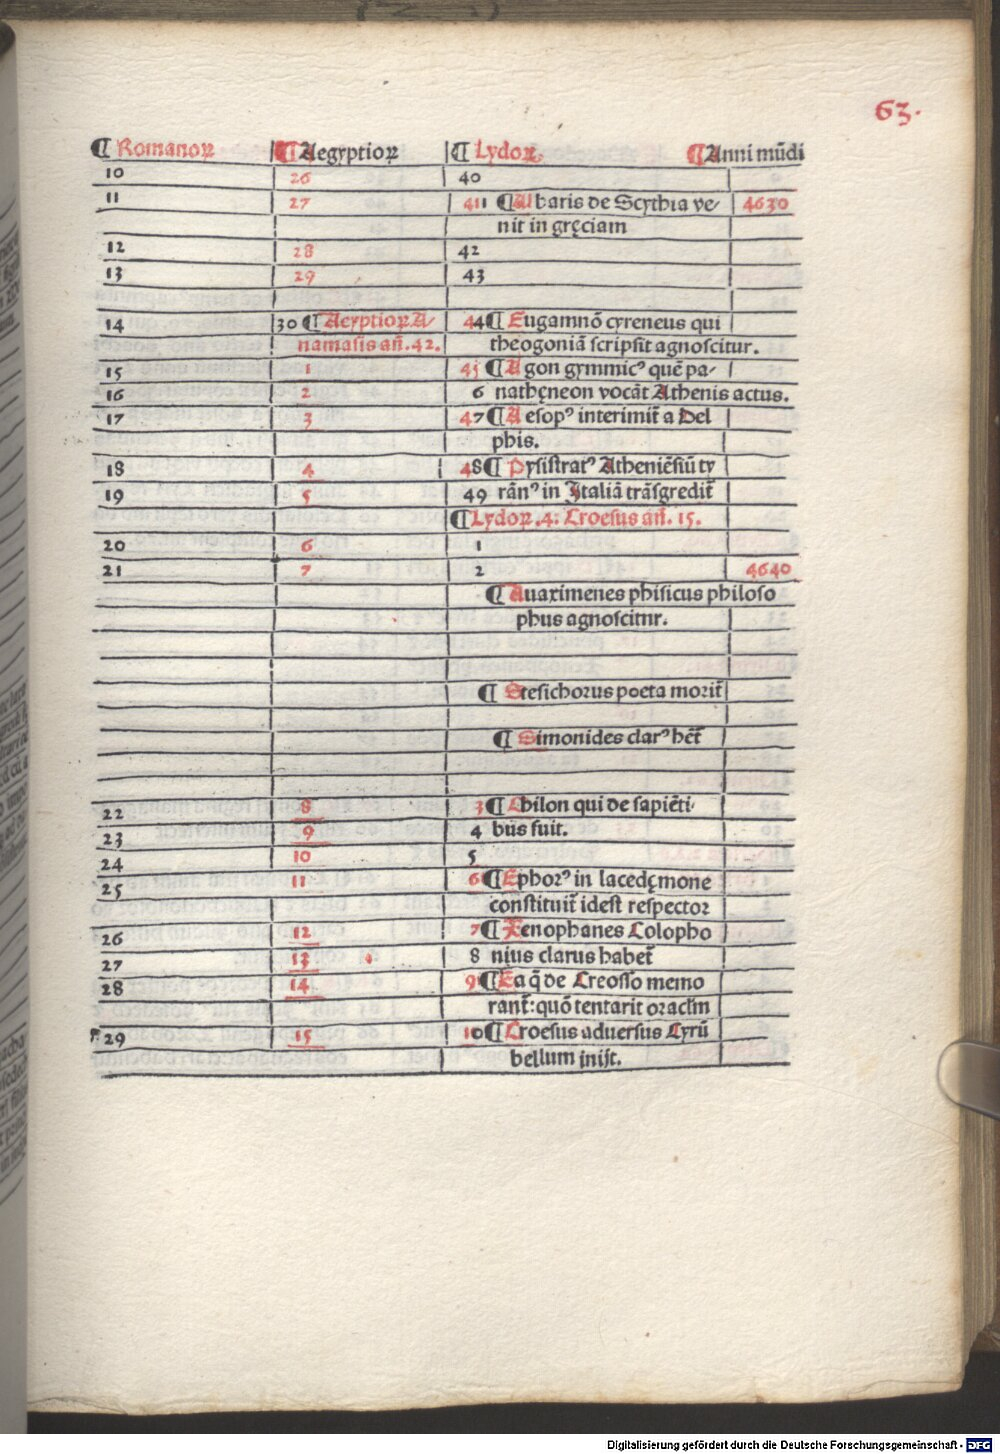 63.
¶ Romanoꝝ ¶ Aegyptioꝝ ¶ Lydoꝝ. ¶ Anni mūdi
10 26 40
11 27 41 ¶ Abaris de Scythia ve- 4630
nit in gręciam
12 28 42
13 29 43
14 30 ¶ Aegyptioꝝ A- 44 ¶ Eugamnō cyreneus qui
namasis añ. 42. theogoniā scripsit agnoscitur.
15 1 45 ¶ Agon gymmicꝰ quē pa-
16 2 6 nathęneon vocāt Athenis actus.
17 3 47 ¶ Aesopꝰ interimit̄ a Del
phis.
18 4 48 ¶ Pysistratꝰ Atheniēsiū ty
19 5 49 rānꝰ in Italiā trāsgredit̄
¶ Lydoꝝ. 4: Croesus añ. 15.
20 6 1
21 7 2 4640
¶ Avaximenes phisicus philoso
phus agnoscitnr.
¶ Stesichorus poeta morit̄
¶ Simonides clarꝰ hēt̄
22 8 3 ¶ Chilon qui de sapiēti-
23 9 4 bus fuit.
24 10 5
25 11 6 ¶ Ephorꝰ in lacedęmone
constituit̄ idest respector
26 12 7 ¶ Xenophanes Colopho
27 13 8 nius clarus habet̄
28 14 9 ¶ Ea q̄ de Creosso memo
rant̄: quō tentarit oraclm
29 15 10 ¶ Croesus adversus Cyrū
bellum inijt.
Digitalisierung gefördert durch die Deutsche Forschungsgemeinschaft - DFG